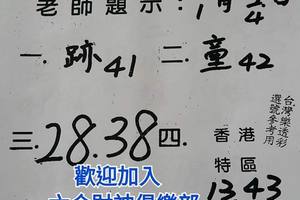 老師題示:
一.跡41 二.童42
三.28.38 四.
香港
特區
13 43
台灣樂透彩
選號參考用
歡迎加入
六合財神俱樂部